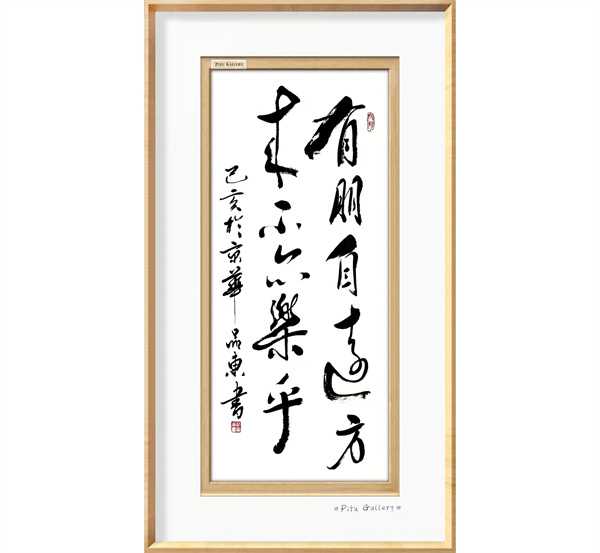 PITU GALLERY
有朋自遠方
来不亦樂乎
己亥於京華 品東書
Pitu Gallery